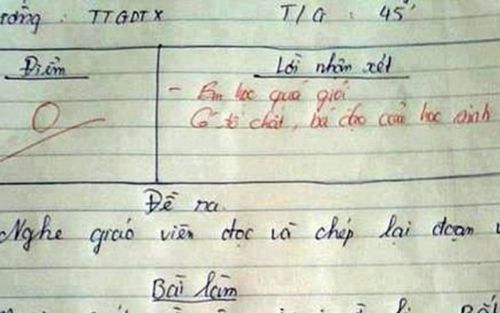 TTGDTX T/G : 45'
Điểm Lời nhân xét
0
- Em học quá giỏi
Có tố chất, bá đạo của học sinh
Đề ra.
Nghe giáo viên đọc và chép lại đoạn
Bài làm